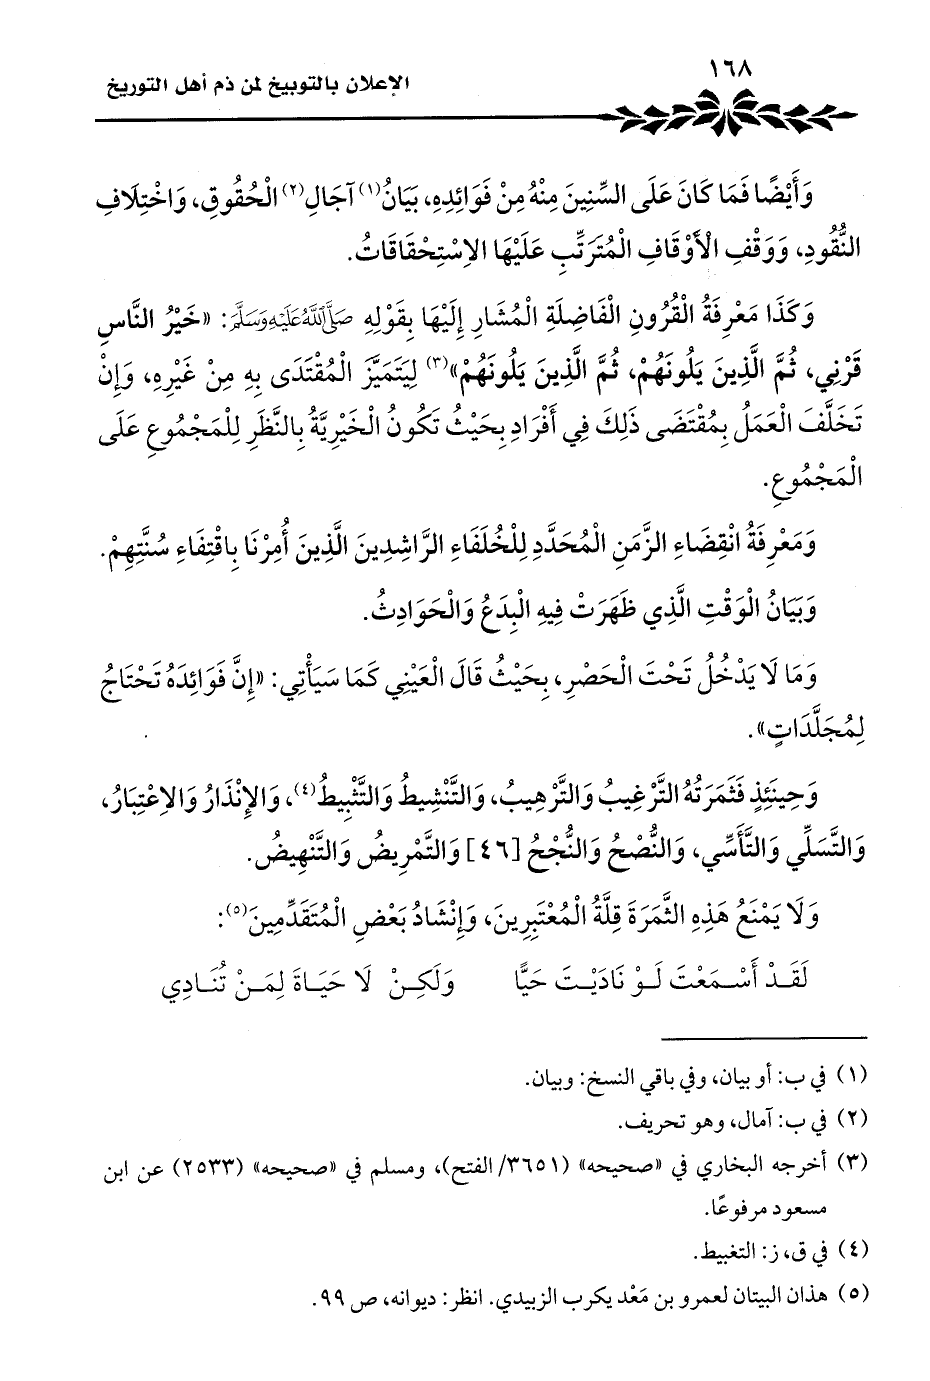 ١٦٨
الإعلان بالتوبيخ لمن ذم أهل التوريخ
وَأَيْضًا فَمَا كَانَ عَلَى السِّنِينَ مِنْهُ مِنْ فَوَائِدِهِ، بَيَانُ(١) آجَالِ(٢) الْحُقُوقِ، وَاخْتِلَافِ
النُّقُودِ، وَوَقْفِ الْأَوْقَافِ الْمُتَرَتِّبِ عَلَيْهَا الاِسْتِحْقَاقَاتُ.
وَكَذَا مَعْرِفَةُ الْقُرُونِ الْفَاضِلَةِ الْمُشَارِ إِلَيْهَا بِقَوْلِهِ صَلَّى اللَّهُ عَلَيْهِ وَسَلَّمَ: «خَيْرُ النَّاسِ
قَرْنِي، ثُمَّ الَّذِينَ يَلُونَهُمْ، ثُمَّ الَّذِينَ يَلُونَهُمْ»(٣) لِيَتَمَيَّزَ الْمُقْتَدَى بِهِ مِنْ غَيْرِهِ، وَإِنْ
تَخَلَّفَ الْعَمَلُ بِمُقْتَضَى ذَلِكَ فِي أَفْرَادٍ بِحَيْثُ تَكُونُ الْخَيْرِيَّةُ بِالنَّظَرِ لِلْمَجْمُوعِ عَلَى
الْمَجْمُوعِ.
وَمَعْرِفَةُ انْقِضَاءِ الزَّمَنِ الْمُحَدَّدِ لِلْخُلَفَاءِ الرَّاشِدِينَ الَّذِينَ أُمِرْنَا بِاقْتِفَاءِ سُنَّتِهِمْ.
وَبَيَانُ الْوَقْتِ الَّذِي ظَهَرَتْ فِيهِ الْبِدَعُ وَالْحَوَادِثُ.
وَمَا لَا يَدْخُلُ تَحْتَ الْحَصْرِ، بِحَيْثُ قَالَ الْعَيْنِي كَمَا سَيَأْتِي: «إِنَّ فَوَائِدَهُ تَحْتَاجُ
لِمُجَلَّدَاتٍ».
وَحِينَئِذٍ فَثَمَرَتُهُ التَّرْغِيبُ وَالتَّرْهِيبُ، وَالتَّنْشِيطُ وَالتَّثْبِيطُ(٤)، وَالإِنْذَارُ وَالاِعْتِبَارُ،
وَالتَّسَلِّي وَالتَّأَسِّي، وَالنُّصْحُ وَالنُّجْحُ [٤٦] وَالتَّمْرِيضُ وَالتَّنْهِيضُ.
وَلَا يَمْنَعُ هَذِهِ الثَّمَرَةَ قِلَّةُ الْمُعْتَبِرِينَ، وَإِنْشَادُ بَعْضِ الْمُتَقَدِّمِينَ(٥):
لَقَدْ أَسْمَعْتَ لَوْ نَادَيْتَ حَيًّا وَلَكِنْ لَا حَيَاةَ لِمَنْ تُنَادِي
(١) في ب: أو بيان، وفي باقي النسخ: وبيان.
(٢) في ب: آمال، وهو تحريف.
(٣) أخرجه البخاري في «صحيحه» (٣٦٥١/ الفتح)، ومسلم في «صحيحه» (٢٥٣٣) عن ابن
مسعود مرفوعًا.
(٤) في ق، ز: التغبيط.
(٥) هذان البيتان لعمرو بن مَعْد يكرب الزبيدي. انظر: ديوانه، ص ٩٩.